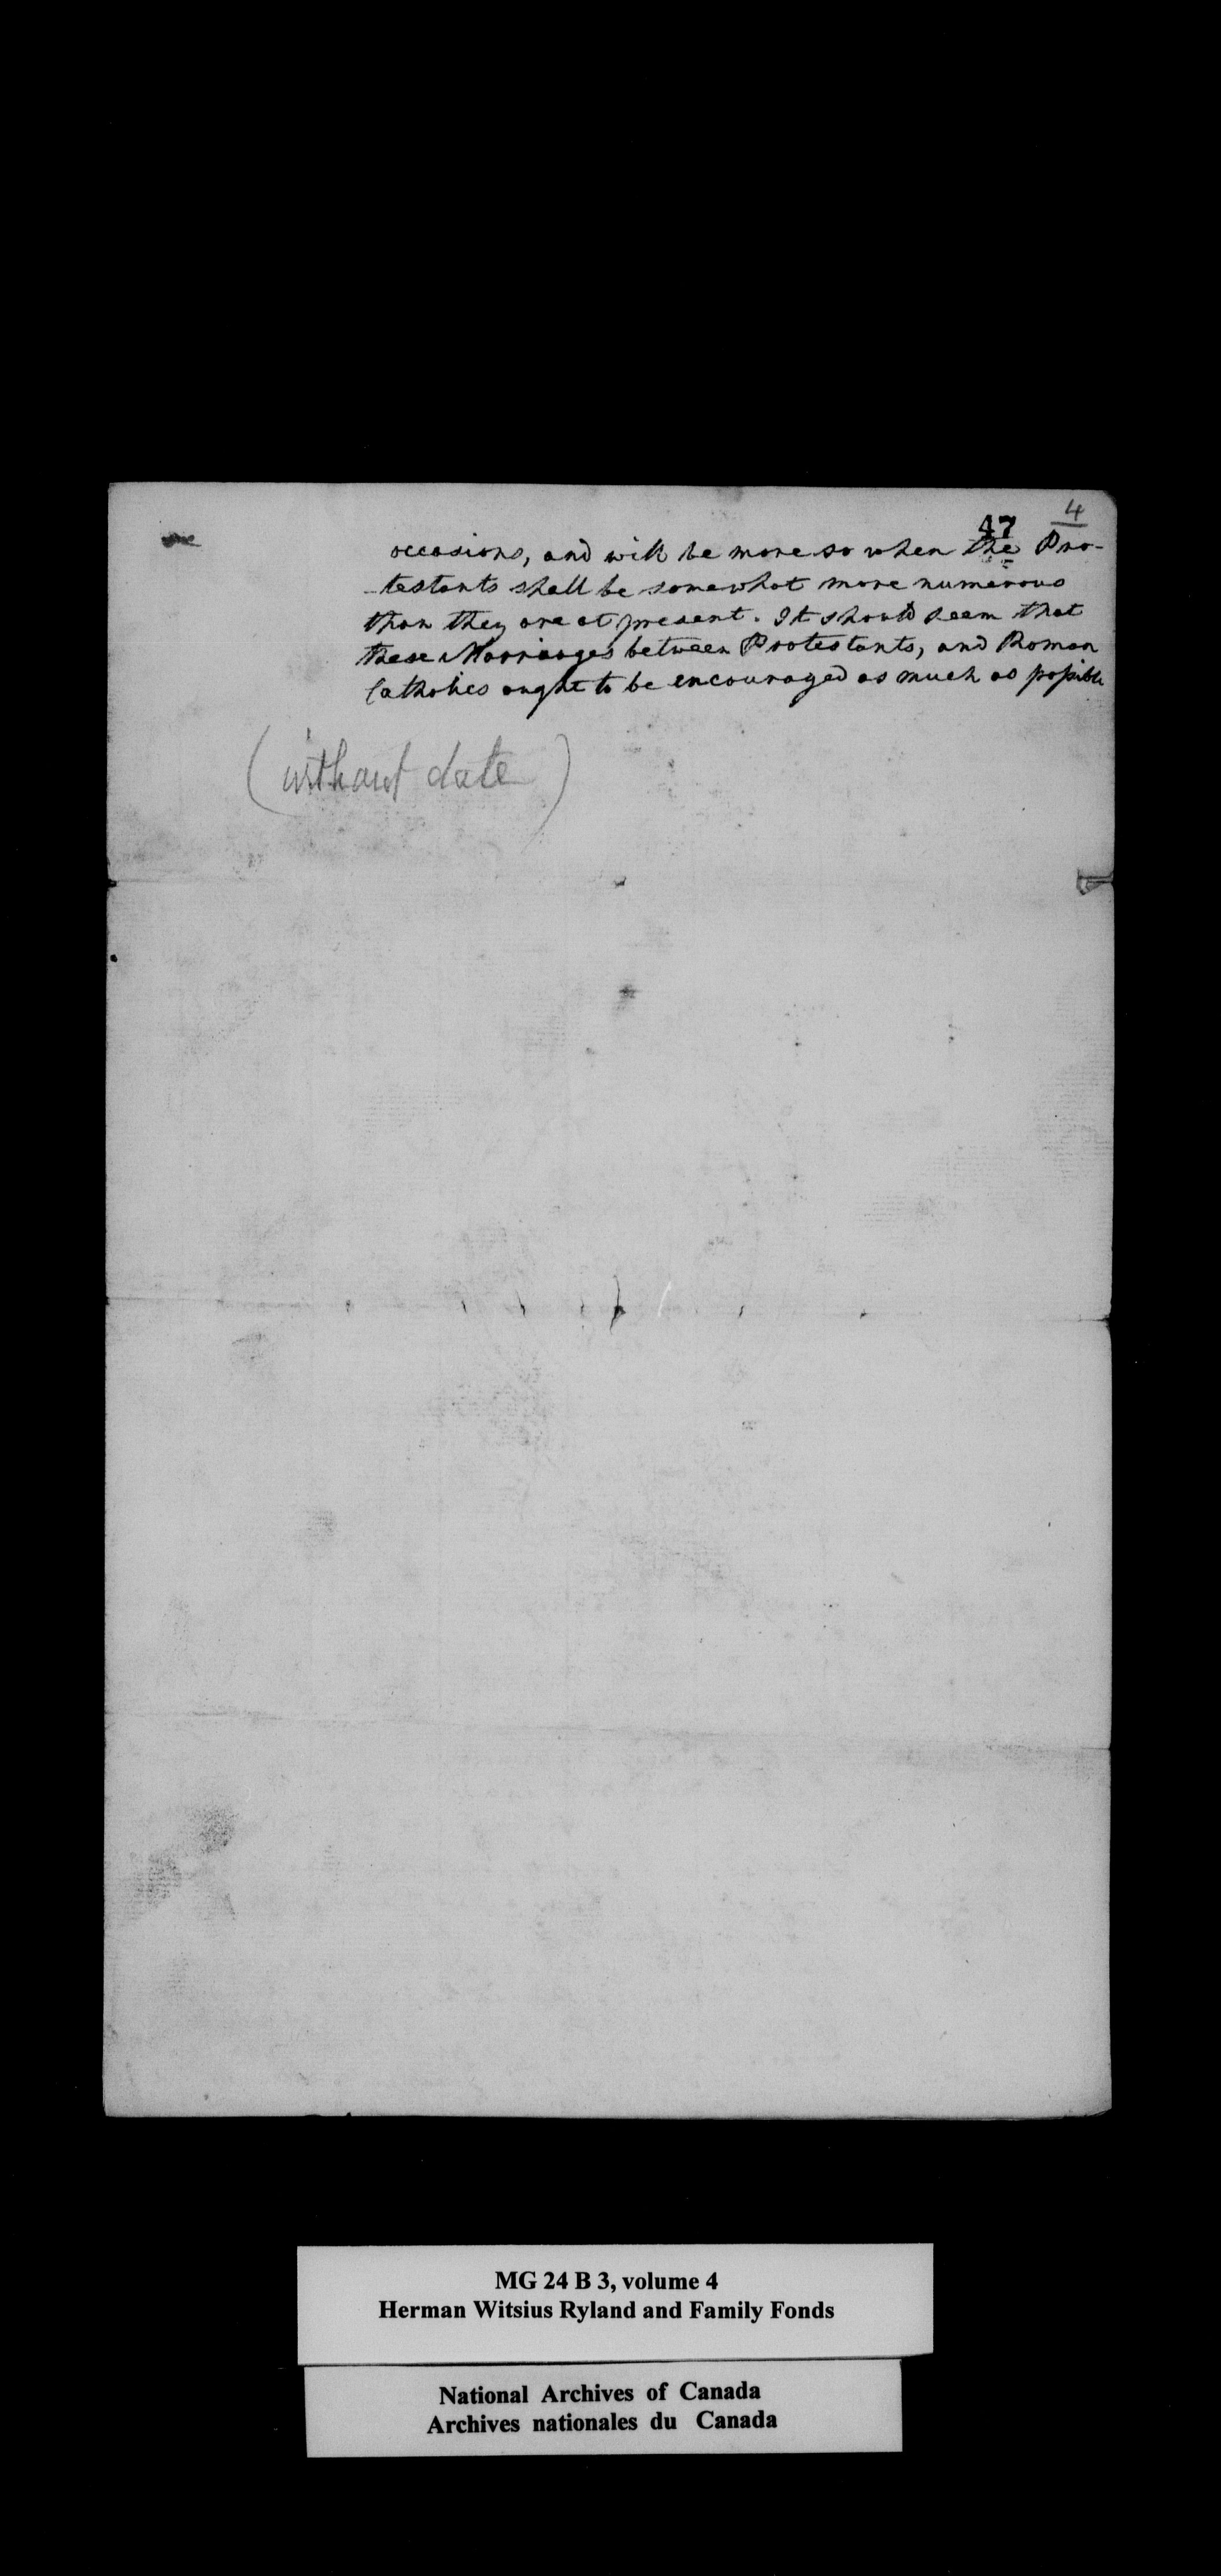 47 4
occasions, and will be more so when the Pro-
-testants shall be somewhat more numerous
than they are at present. It should seem that
these Marriages between Protestants, and Roman
Catholics ought to be encouraged as much as possible
(without date)
MG 24 B 3, volume 4
Herman Witsius Ryland and Family Fonds
National Archives of Canada
Archives nationales du Canada